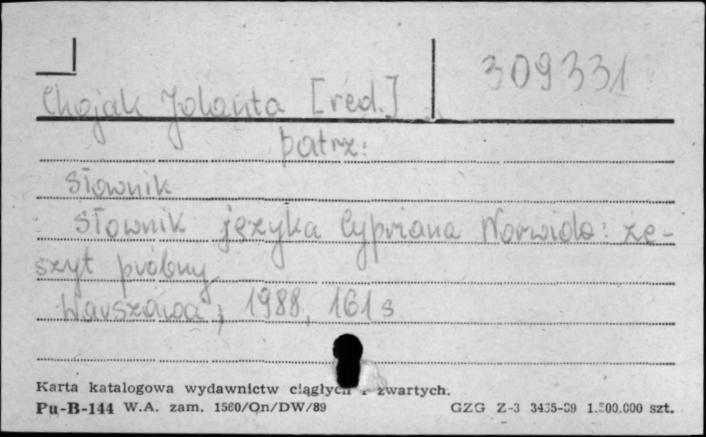 309331
Chojak Jolanta [red.]
patrz:
Słownik
Słownik języka Cypriana Norwida: ze-
szyt próbny
Warszawa, 1988, 161 s
Karta katalogowa wydawnictw ciągłych i zwartych.
Pu-B-144 W.A. zam. 1560/Qn/DW/89 GZG Z-3 3435-89 1.500.000 szt.